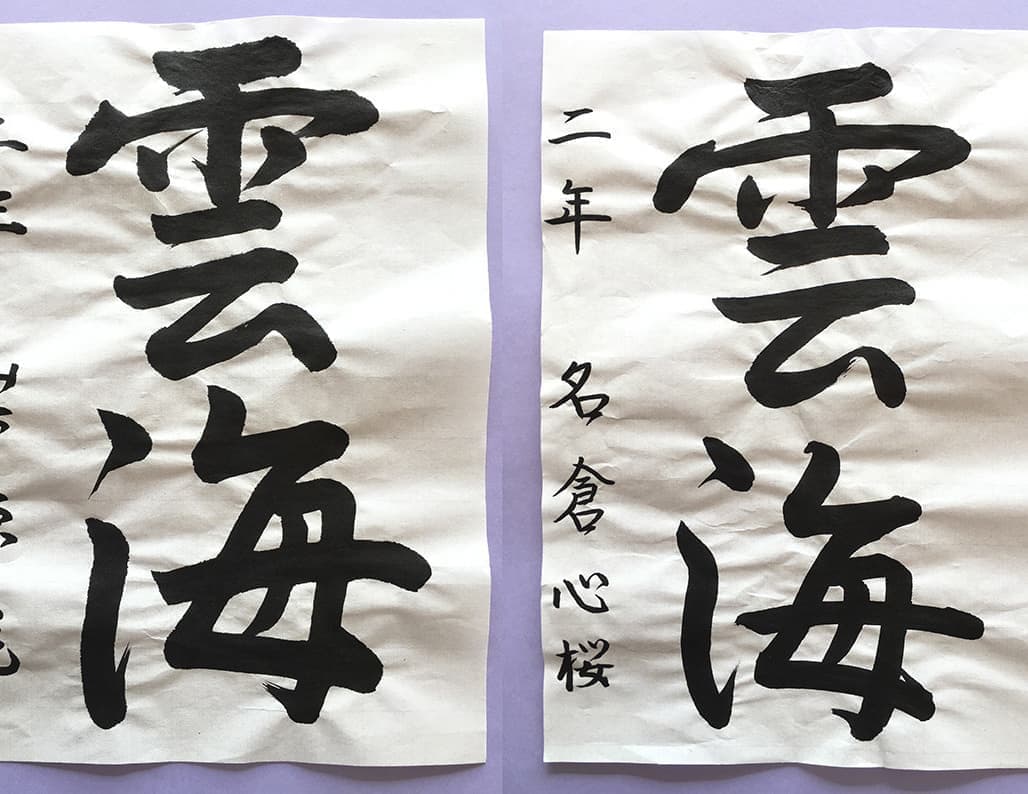 雲海
二年 名倉心桜
雲海